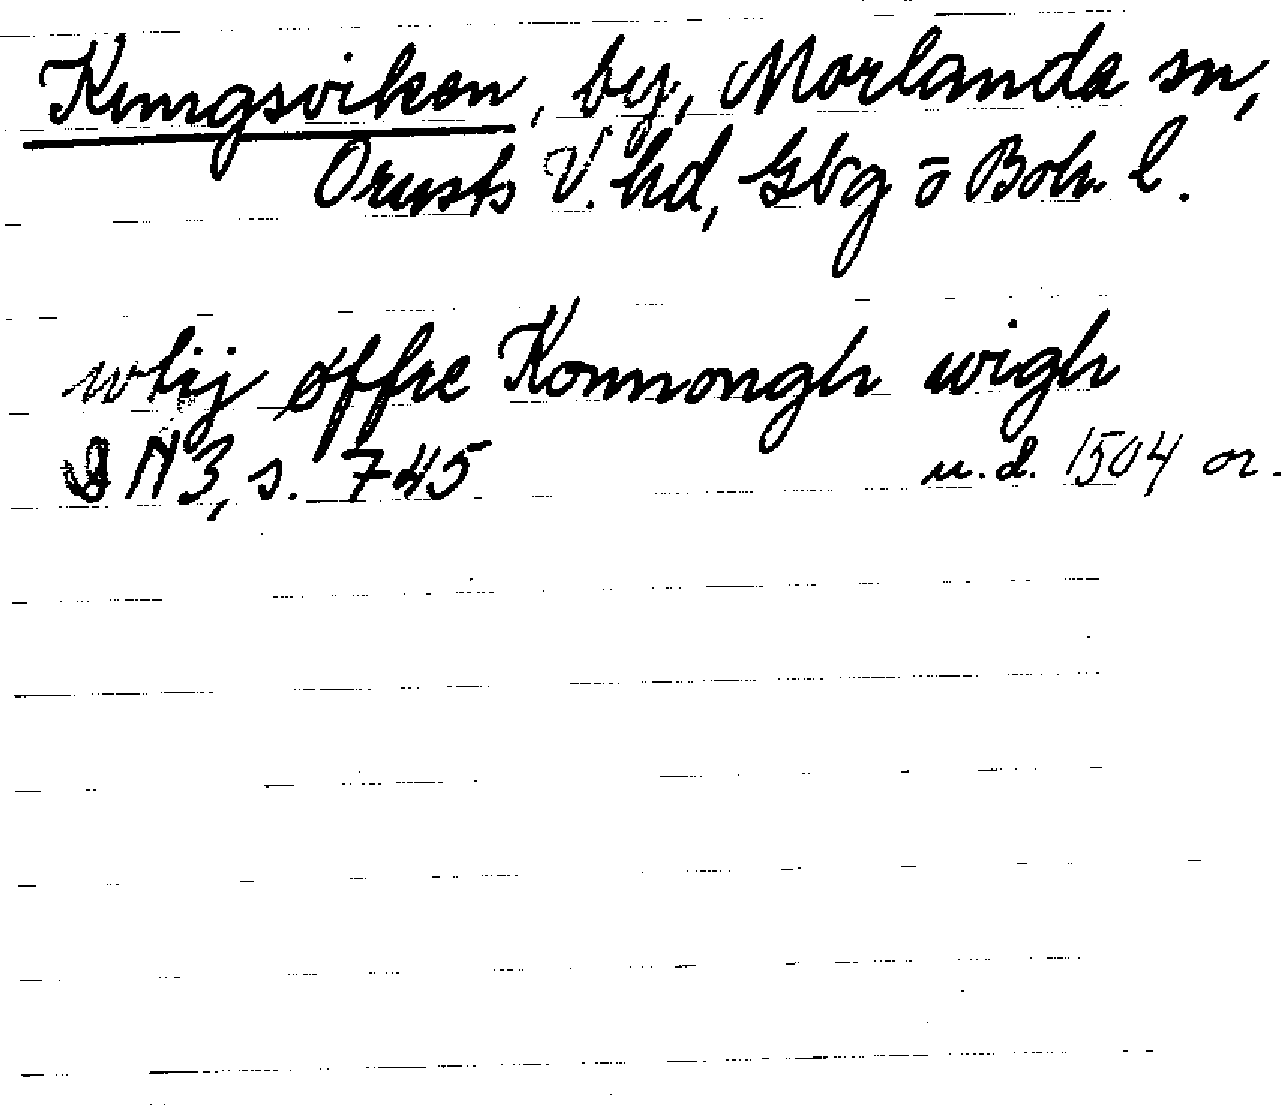 Kungsviken, by, Morlanda sn,
Orusts V. hd, Gbg o Boh. l.
wtij øffre Konnongh wigh
DN 3, s. 745 u.d. 1504 or.